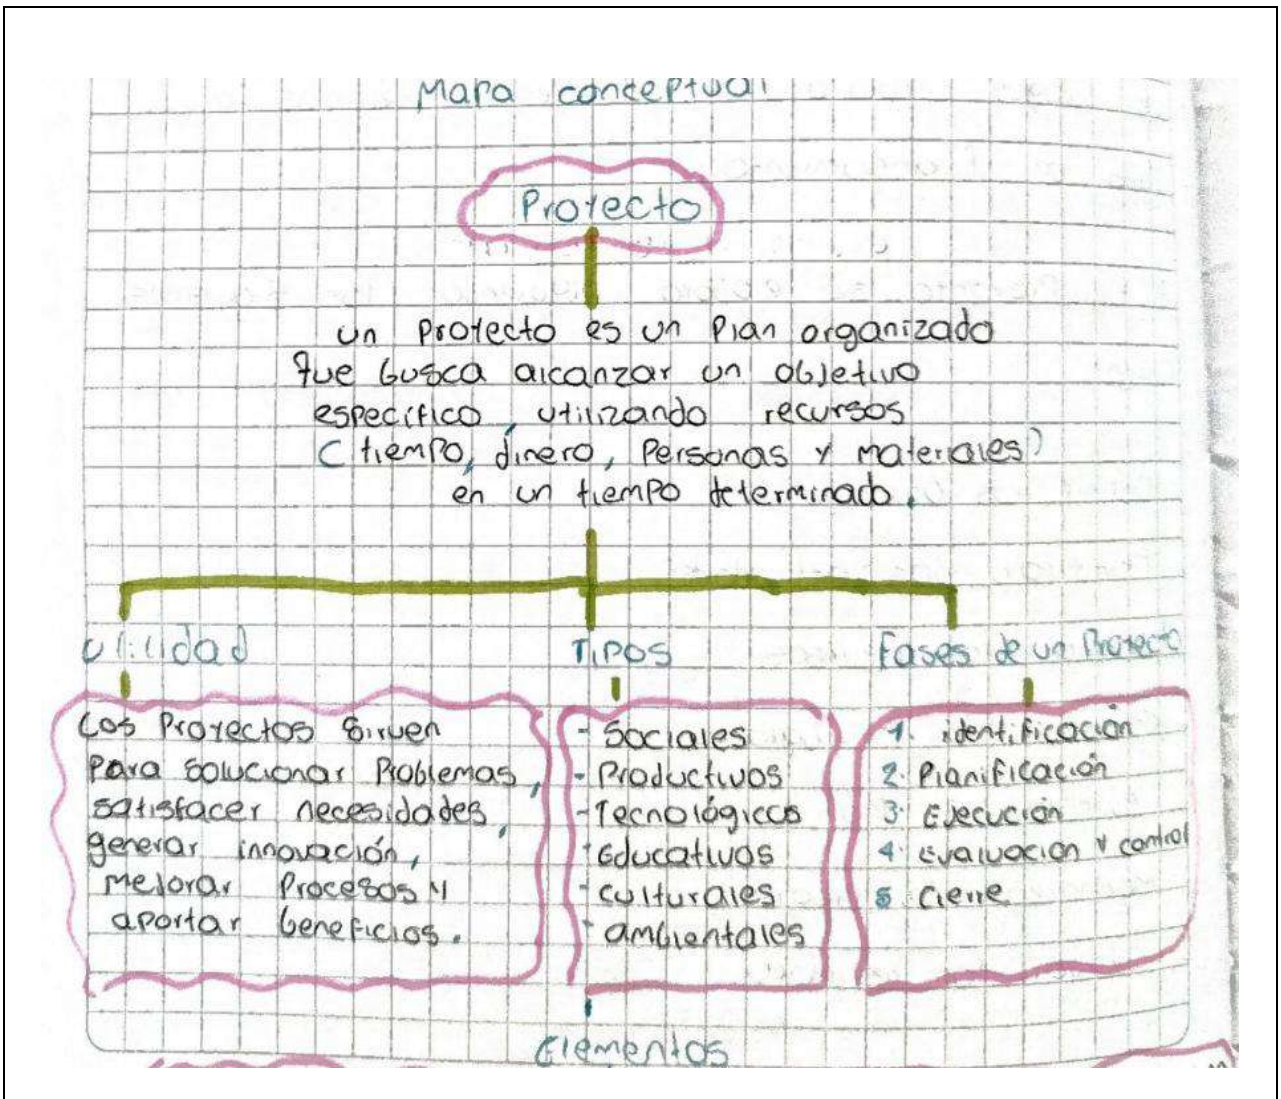 Mapa conceptual
Proyecto
un proyecto es un plan organizado
que busca alcanzar un objetivo
específico, utilizando recursos
(tiempo, dinero, personas y materiales)
en un tiempo determinado.
Utilidad
Tipos
Fases de un Proyecto
Los proyectos sirven
para solucionar problemas,
satisfacer necesidades,
generar innovación,
mejorar procesos y
aportar beneficios.
- Sociales
- Productivos
- Tecnológicos
- Educativos
- culturales
- ambientales
1. identificación
2. Planificación
3. Ejecución
4. Evaluacion y control
5 Cierre
Elementos